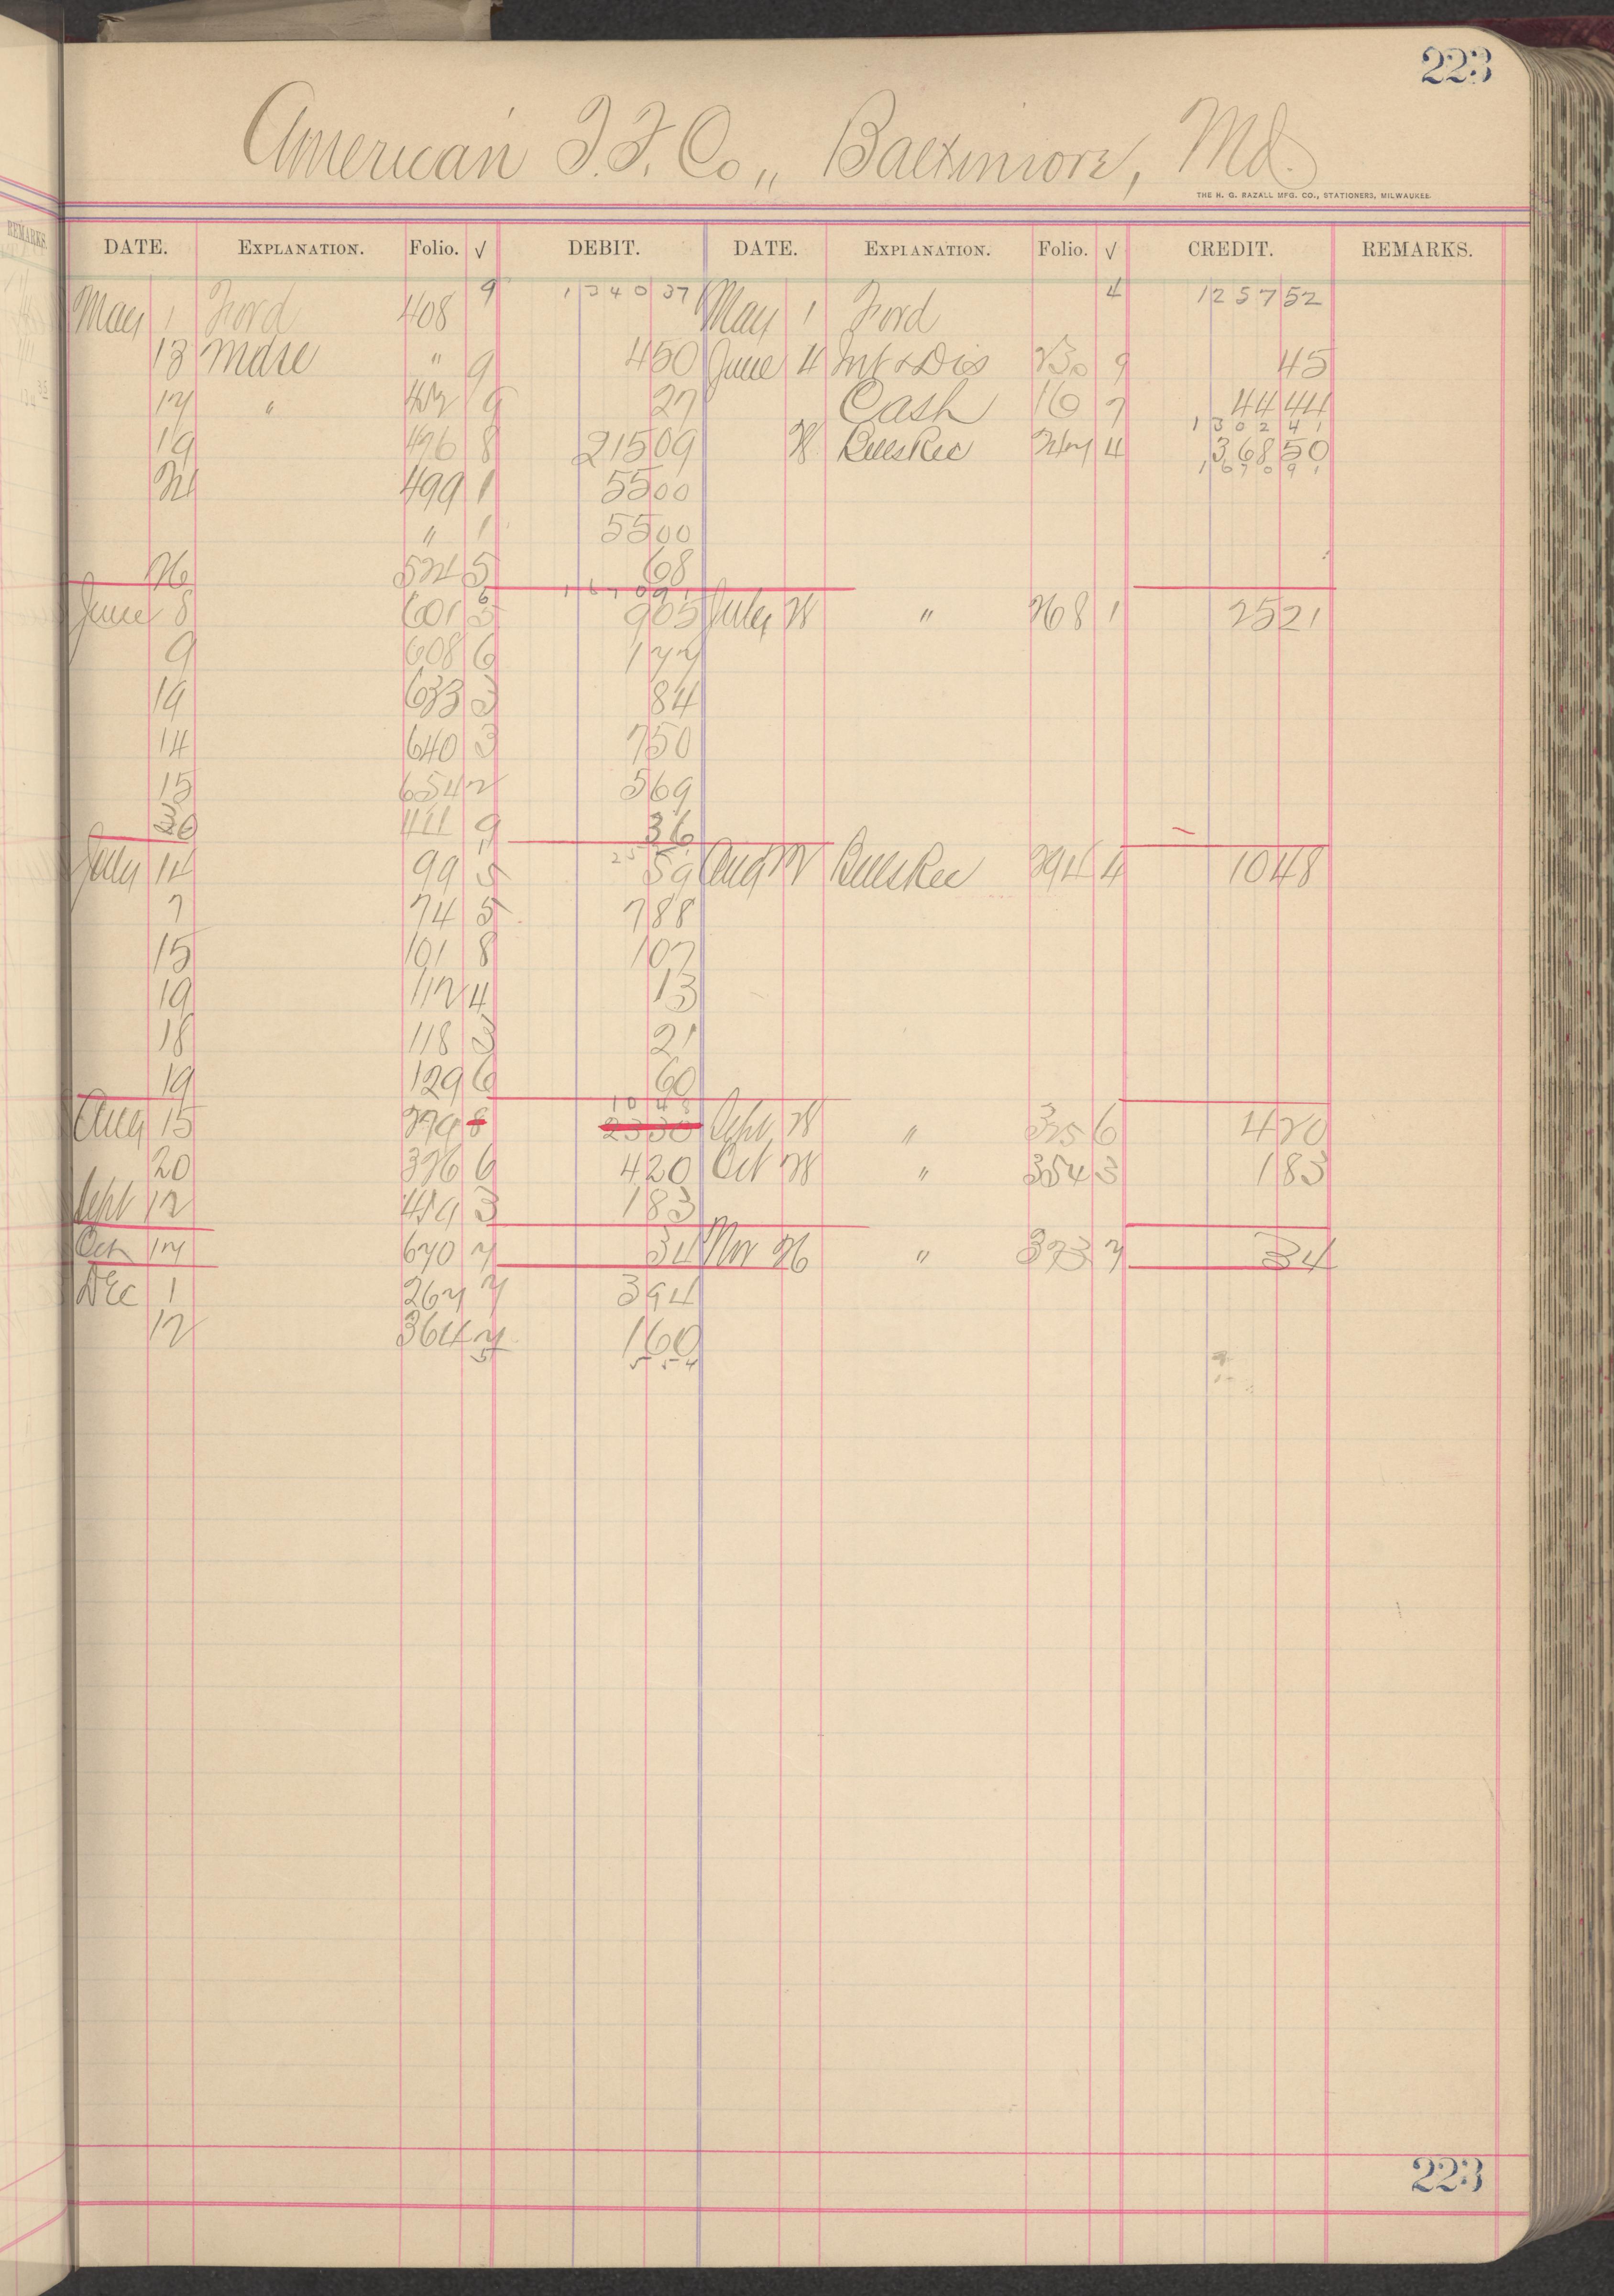 223
American T. F. Co., Baltimore, Md.
THE H. G. RAZALL MFG. CO., STATIONERS, MILWAUKEE.
REMARKS.
DATE. EXPLANATION. Folio. √ DEBIT. DATE. EXPLANATION. Folio. √ CREDIT. REMARKS.
May 1 Ford 408 9 1340 37 May 1 Ford 4 1257 52
13 Mdse " 9 4 50 June 4 Int & Dis 230 9 45
17 " 452 9 27 Cash 16 7 44 44
1302 41
19 476 8 215 09 28 BillsRec 247 4 368 50
1670 91
24 499 1 55 00
" 1 55 00
26 524 5 68
1670 91
June 8 601 5 9 05 July 28 " 268 1 25 21
9 608 6 1 77
19 633 3 84
14 640 3 7 50
15 654 2 5 69
30 441 9 36
25 21
July 14 99 5 59 Aug 22 BillsRec 294 4 10 48
7 74 5 7 88
15 101 8 1 07
19 112 4 13
18 118 3 21
19 129 6 60
10 48
Aug 15 279 8 23 30 Sept 28 " 325 6 4 20
20 326 6 4 20 Oct 28 " 354 3 1 83
Sept 12 459 3 1 83
Oct 17 670 7 34 Nov 26 " 373 7 34
Dec 1 267 7 3 94
12 364 7 1 60
5 5 54
223